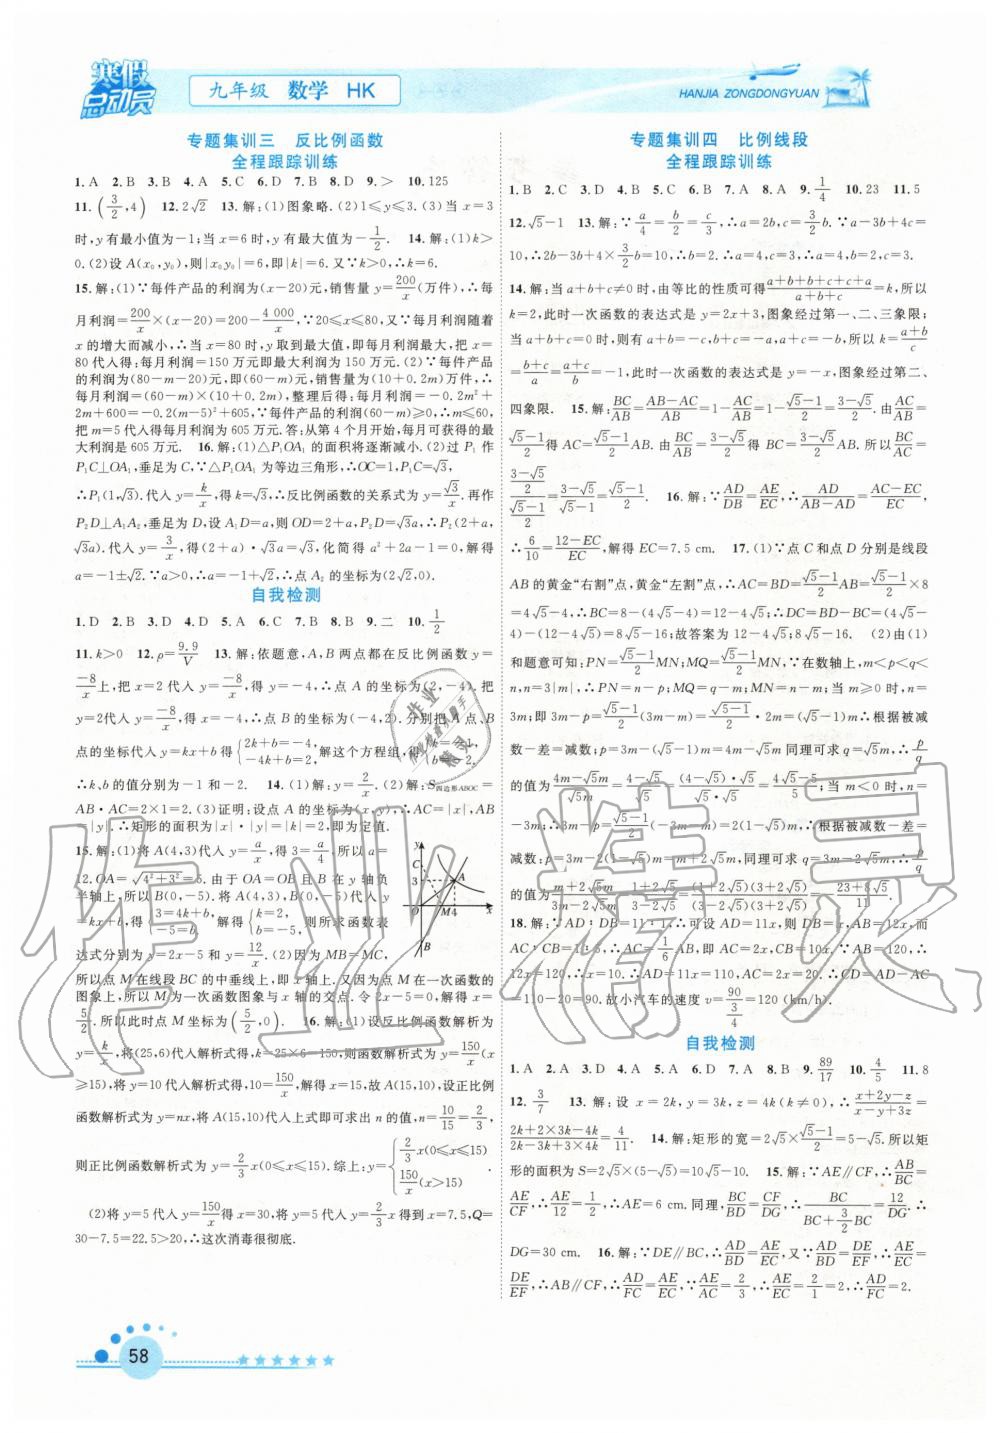 寒假总动员
九年级 数学 HK
HANJIA ZONGDONGYUAN
专题集训三 反比例函数
全程跟踪训练
1. A 2. B 3. B 4. A 5. C 6. D 7. B 8. D 9. > 10. 125
11. (3/2,4) 12. 2√2 13. 解:(1)图象略.(2)1≤y≤3.(3)当 x=3
时,y 有最小值为-1;当 x=6 时,y 有最大值为-1/2. 14. 解:(1)k>
0.(2)设 A(x₀,y₀),则|x₀y₀|=6,即|k|=6.又∵k>0,∴k=6.
15. 解:(1)∵每件产品的利润为(x-20)元,销售量 y=200/x(万件),∴每
月利润=200/x×(x-20)=200-4 000/x.∵20≤x≤80,又∵每月利润随着
x 的增大而减小,∴当 x=80 时,y 取到最大值,即每月利润最大,把 x=
80 代入得:每月利润=150 万元即最大利润为 150 万元.(2)∵每件产品
的利润为(80-m-20)元,即(60-m)元,销售量为(10+0.2m)万件,∴
每月利润=(60-m)(10+0.2m),整理后得:每月利润=-0.2m²+
2m+600=-0.2(m-5)²+605.∵每件产品的利润(60-m)≥0,∴m≤60,
把 m=5 代入得每月利润=605 万元.答:从第 4 个月开始,每月可获得的最
大利润是 605 万元. 16. 解:(1)△P₁OA₁ 的面积将逐渐减小.(2)过 P₁ 作
P₁C⊥OA₁,垂足为 C,∵△P₁OA₁ 为等边三角形,∴OC=1,P₁C=√3,
∴P₁(1,√3).代入 y=k/x,得 k=√3,∴反比例函数的关系式为 y=√3/x.再作
P₂D⊥A₁A₂,垂足为 D,设 A₁D=a,则 OD=2+a,P₂D=√3a,∴P₂(2+a,
√3a).代入 y=√3/x,得(2+a)·√3a=√3,化简得 a²+2a-1=0,解得
a=-1±√2.∵a>0,∴a=-1+√2,∴点 A₂ 的坐标为(2√2,0).
自我检测
1. D 2. B 3. D 4. D 5. A 6. C 7. B 8. B 9. 二 10. 1/2
11. k>0 12. ρ=9.9/V 13. 解:依题意,A,B 两点都在反比例函数 y=
-8/x上,把 x=2 代入 y=-8/x,得 y=-4.∴点 A 的坐标为(2,-4).把
y=2代入 y=-8/x,得 x=-4.∴点 B 的坐标为(-4,2).分别把 A 点、B
点的坐标代入 y=kx+b 得{2k+b=-4,-4k+b=2,解这个方程组,得{k=-1,b=-2,
∴k,b 的值分别为-1 和-2. 14. (1)解:y=2/x.(2)解:S四边形ABOC=
AB·AC=2×1=2.(3)证明:设点 A 的坐标为(x,y),∴AC=|x|,AB
=|y|.∴矩形的面积为|x|·|y|=|k|=2,即为定值.
15. 解:(1)将 A(4,3)代入 y=a/x,得 3=a/4.所以 a=
12.OA=√4²+3²=5.由于 OA=OB 且 B 在 y 轴负
半轴上,所以 B(0,-5).将 A(4,3),B(0,-5)代入 y
=kx+b,得{3=4k+b,-5=b.解得{k=2,b=-5.则所求函数表
达式分别为 y=2x-5 和 y=12/x.(2)因为 MB=MC,
所以点 M 在线段 BC 的中垂线上,即 x 轴上.又因为点 M 在一次函数的
图象上,所以 M 为一次函数图象与 x 轴的交点.令 2x-5=0,解得 x=
5/2.所以此时点 M 坐标为(5/2,0). 16. 解:(1)设反比例函数解析为
y=k/x,将(25,6)代入解析式得,k=25×6=150,则函数解析式为 y=150/x(x
≥15),将 y=10 代入解析式得,10=150/x,解得 x=15,故 A(15,10),设正比例
函数解析式为 y=nx,将 A(15,10)代入上式即可求出 n 的值,n=10/15=2/3,
则正比例函数解析式为 y=2/3x(0≤x≤15).综上:y={2/3x(0≤x≤15)150/x(x>15)
(2)将 y=5 代入 y=150/x得 x=30,将 y=5 代入 y=2/3x 得到 x=7.5,Q=
30-7.5=22.5>20,∴这次消毒很彻底.
专题集训四 比例线段
全程跟踪训练
1. B 2. C 3. D 4. A 5. C 6. B 7. A 8. A 9. 1/4 10. 23 11. 5
12. √5-1 13. 解:∵a/4=b/2=c/3,∴a=2b,c=3/2b.∵a-3b+4c=
10,∴2b-3b+4×3/2b=10,∴b=2.∴a=4,c=3,∴a=4,b=2,c=3.
14. 解:当 a+b+c≠0 时,由等比的性质可得(a+b+b+c+c+a)/(a+b+c)=k,所以
k=2,此时一次函数的表达式是 y=2x+3,图象经过第一、二、三象限;
当 a+b+c=0 时,则有 a+b=-c,b+c=-a,a+c=-b;所以 k=(a+b)/c
=(b+c)/a=(a+c)/b=-1,此时一次函数的表达式是 y=-x,图象经过第二、
四象限. 15. 解:BC/AB=(AB-AC)/AB=1-AC/AB=1-(√5-1)/2=(3-√5)/2.由AC/AB=
(√5-1)/2得 AC=(√5-1)/2AB.由BC/AB=(3-√5)/2得 BC=(3-√5)/2AB.所以BC/AC=
((3-√5)/2)/((√5-1)/2)=(3-√5)/(√5-1)=(√5-1)/2. 16. 解:∵AD/DB=AE/EC,∴AD/(AB-AD)=(AC-EC)/EC,
∴6/10=(12-EC)/EC,解得 EC=7.5 cm. 17. (1)∵点 C 和点 D 分别是线段
AB 的黄金“右割”点,黄金“左割”点,∴AC=BD=(√5-1)/2AB=(√5-1)/2×8
=4√5-4,∴BC=8-(4√5-4)=12-4√5;∴DC=BD-BC=(4√5-4)
-(12-4√5)=8√5-16;故答案为 12-4√5;8√5-16. (2)由(1)
和题意可知:PN=(√5-1)/2MN;MQ=(√5-1)/2MN,∵在数轴上,m<p<q<
n,n=3|m|,∴PN=n-p,MQ=q-m,MN=n-m;当 m≥0 时,n=
3m,即 3m-p=(√5-1)/2(3m-m)=(√5-1)/2·2m=(√5-1)m!∴根据被减
数-差=减数;p=3m-(√5-1)m=4m-√5m 同理可求 q=√5m,∴p/q
的值为(4m-√5m)/√5m=(4-√5)/√5=(4-√5)·√5/√5·√5=(4√5-5)/5;当 m<0 时,n=
-3m,∴-3m-p=(√5-1)/2(-3m-m)=-2(√5-1)m,∴根据被减数-差=
减数:p=-3m-2(1-√5)m 同理可求 q=-3m-2√5m,∴p/q
18. 解:∵AD:DB=11:1,∴可设 AD=11x,则 DB=x,AB=12x,而
自我检测
1. A 2. A 3. D 4. A 5. A 6. D 7. D 8. B 9. 89/17 10. 4/5 11. 8
12. 3/7 13. 解:设 x=2k,y=3k,z=4k(k≠0),∴(x+2y-z)/(x-y+3z)=
(2k+2×3k-4k)/(2k-3k+3×4k)=4/11. 14. 解:矩形的宽=2√5×(√5-1)/2=5-√5.所以矩
形的面积为 S=2√5×(5-√5)=10√5-10. 15. 解:∵AE∥CF,∴AB/BC=
AE/CF,∴AE/12=1/2,∴AE=6 cm.同理,BC/BD=CF/DG,∴BC/(BC+3/2BC)=12/DG.∴
DG=30 cm. 16. 解:∵DE∥BC,∴AD/BD=AE/EC,又∵AD/BD=DE/EF,∴AE/EC=
DE/EF,∴AB∥CF,∴AD/FC=AE/EC=AD/BD=2/3,∴AE/AC=2/1,∴AD/FC=2.
58